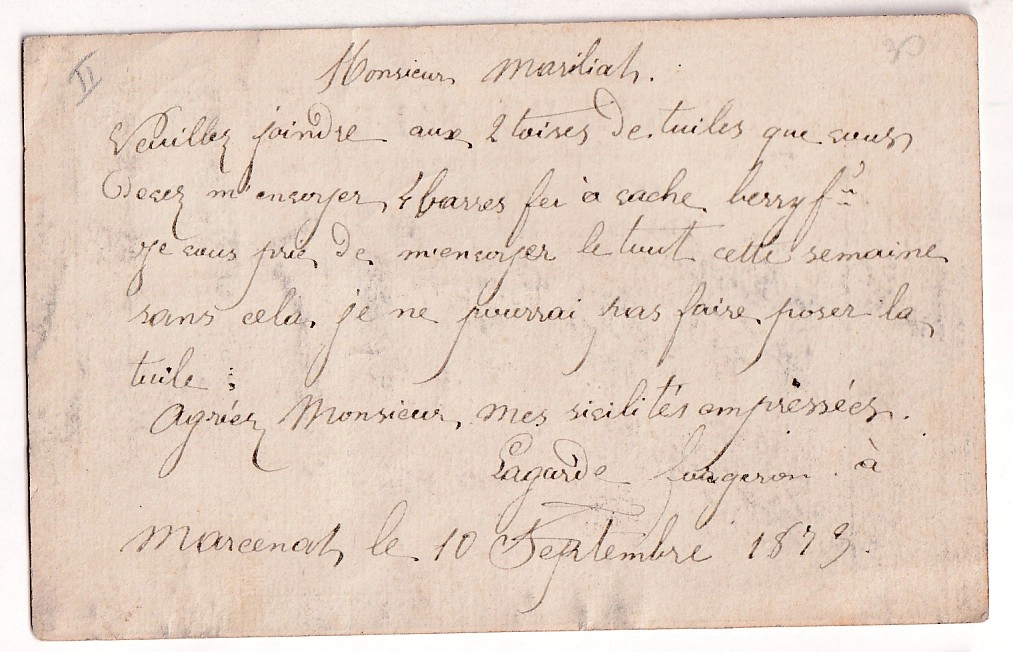 II
30
Monsieur Mariliat.
Veuillez joindre aux 2 toises de tuiles que vous
devez m'envoyer, 4 barres fer à vache berry
je vous prie de m'envoyer le tout cette semaine
sans cela, je ne pourrai pas faire poser la
tuile :
Agréez Monsieur, mes sivilités empressées.
Lagarde forgeron à
Marcenat, le 10 Septembre 1879.